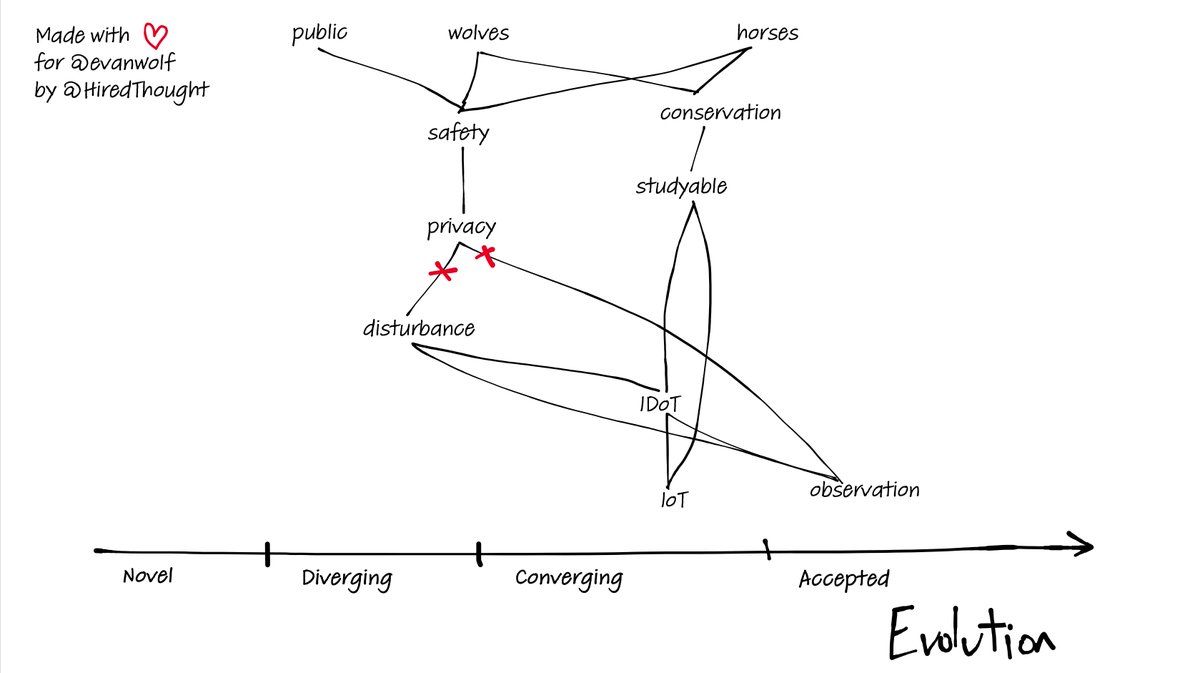 Made with
for @evanwolf
by @HiredThought
public
wolves
horses
conservation
safety
studyable
privacy
disturbance
IDoT
IoT
observation
Novel
Diverging
Converging
Accepted
Evolution